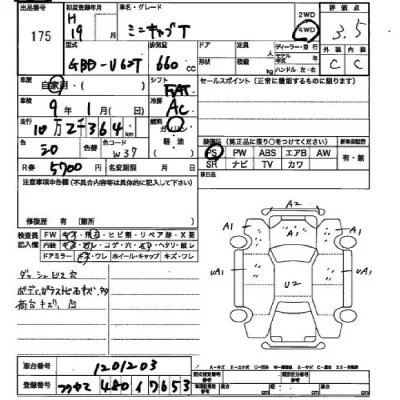 出品番号 初度登録年月 車名・グレード 評価点
175 H 19 月 ミニキャブT 2WD 4WD 3.5
型式 排気量 ドア 定員 ディーラー・並行 外装 内装
GBD-U62T 660 cc 形状 積載量 kg モデル 年 ハンドル 左・右 C C
車歴 自家用 シフト FAT セールスポイント（正常に機能するものに限る）
車検 9年 1月( 日) 冷房 AC
走行 10万2千364 km 燃料 ガソリン 軽油
色 シロ 色替 色コード W37 装備品（純正品に限り○をつけてください） 新車時保証書
R券 5700 名変期限 月 日 PS PW ABS エアB AW 有・無
SR ナビ TV カワ
注意事項申告欄（不具合内容等は具体的に記入して下さい） 後日品
修復歴 有( )箇所
検査員記入欄 FW キズ・飛石・ヒビ割・リペア跡・X要
内装 キズ・コゲ・穴・ヘタリ・錆レ
ドアミラー キズ・ワレ ホイール・キャップ キズ・ワレ
ダッシュビス穴
荷台キズ、凹
A2
A1 A1
UA1 UA1
U2
車台番号 1201203
登録番号 480 17653